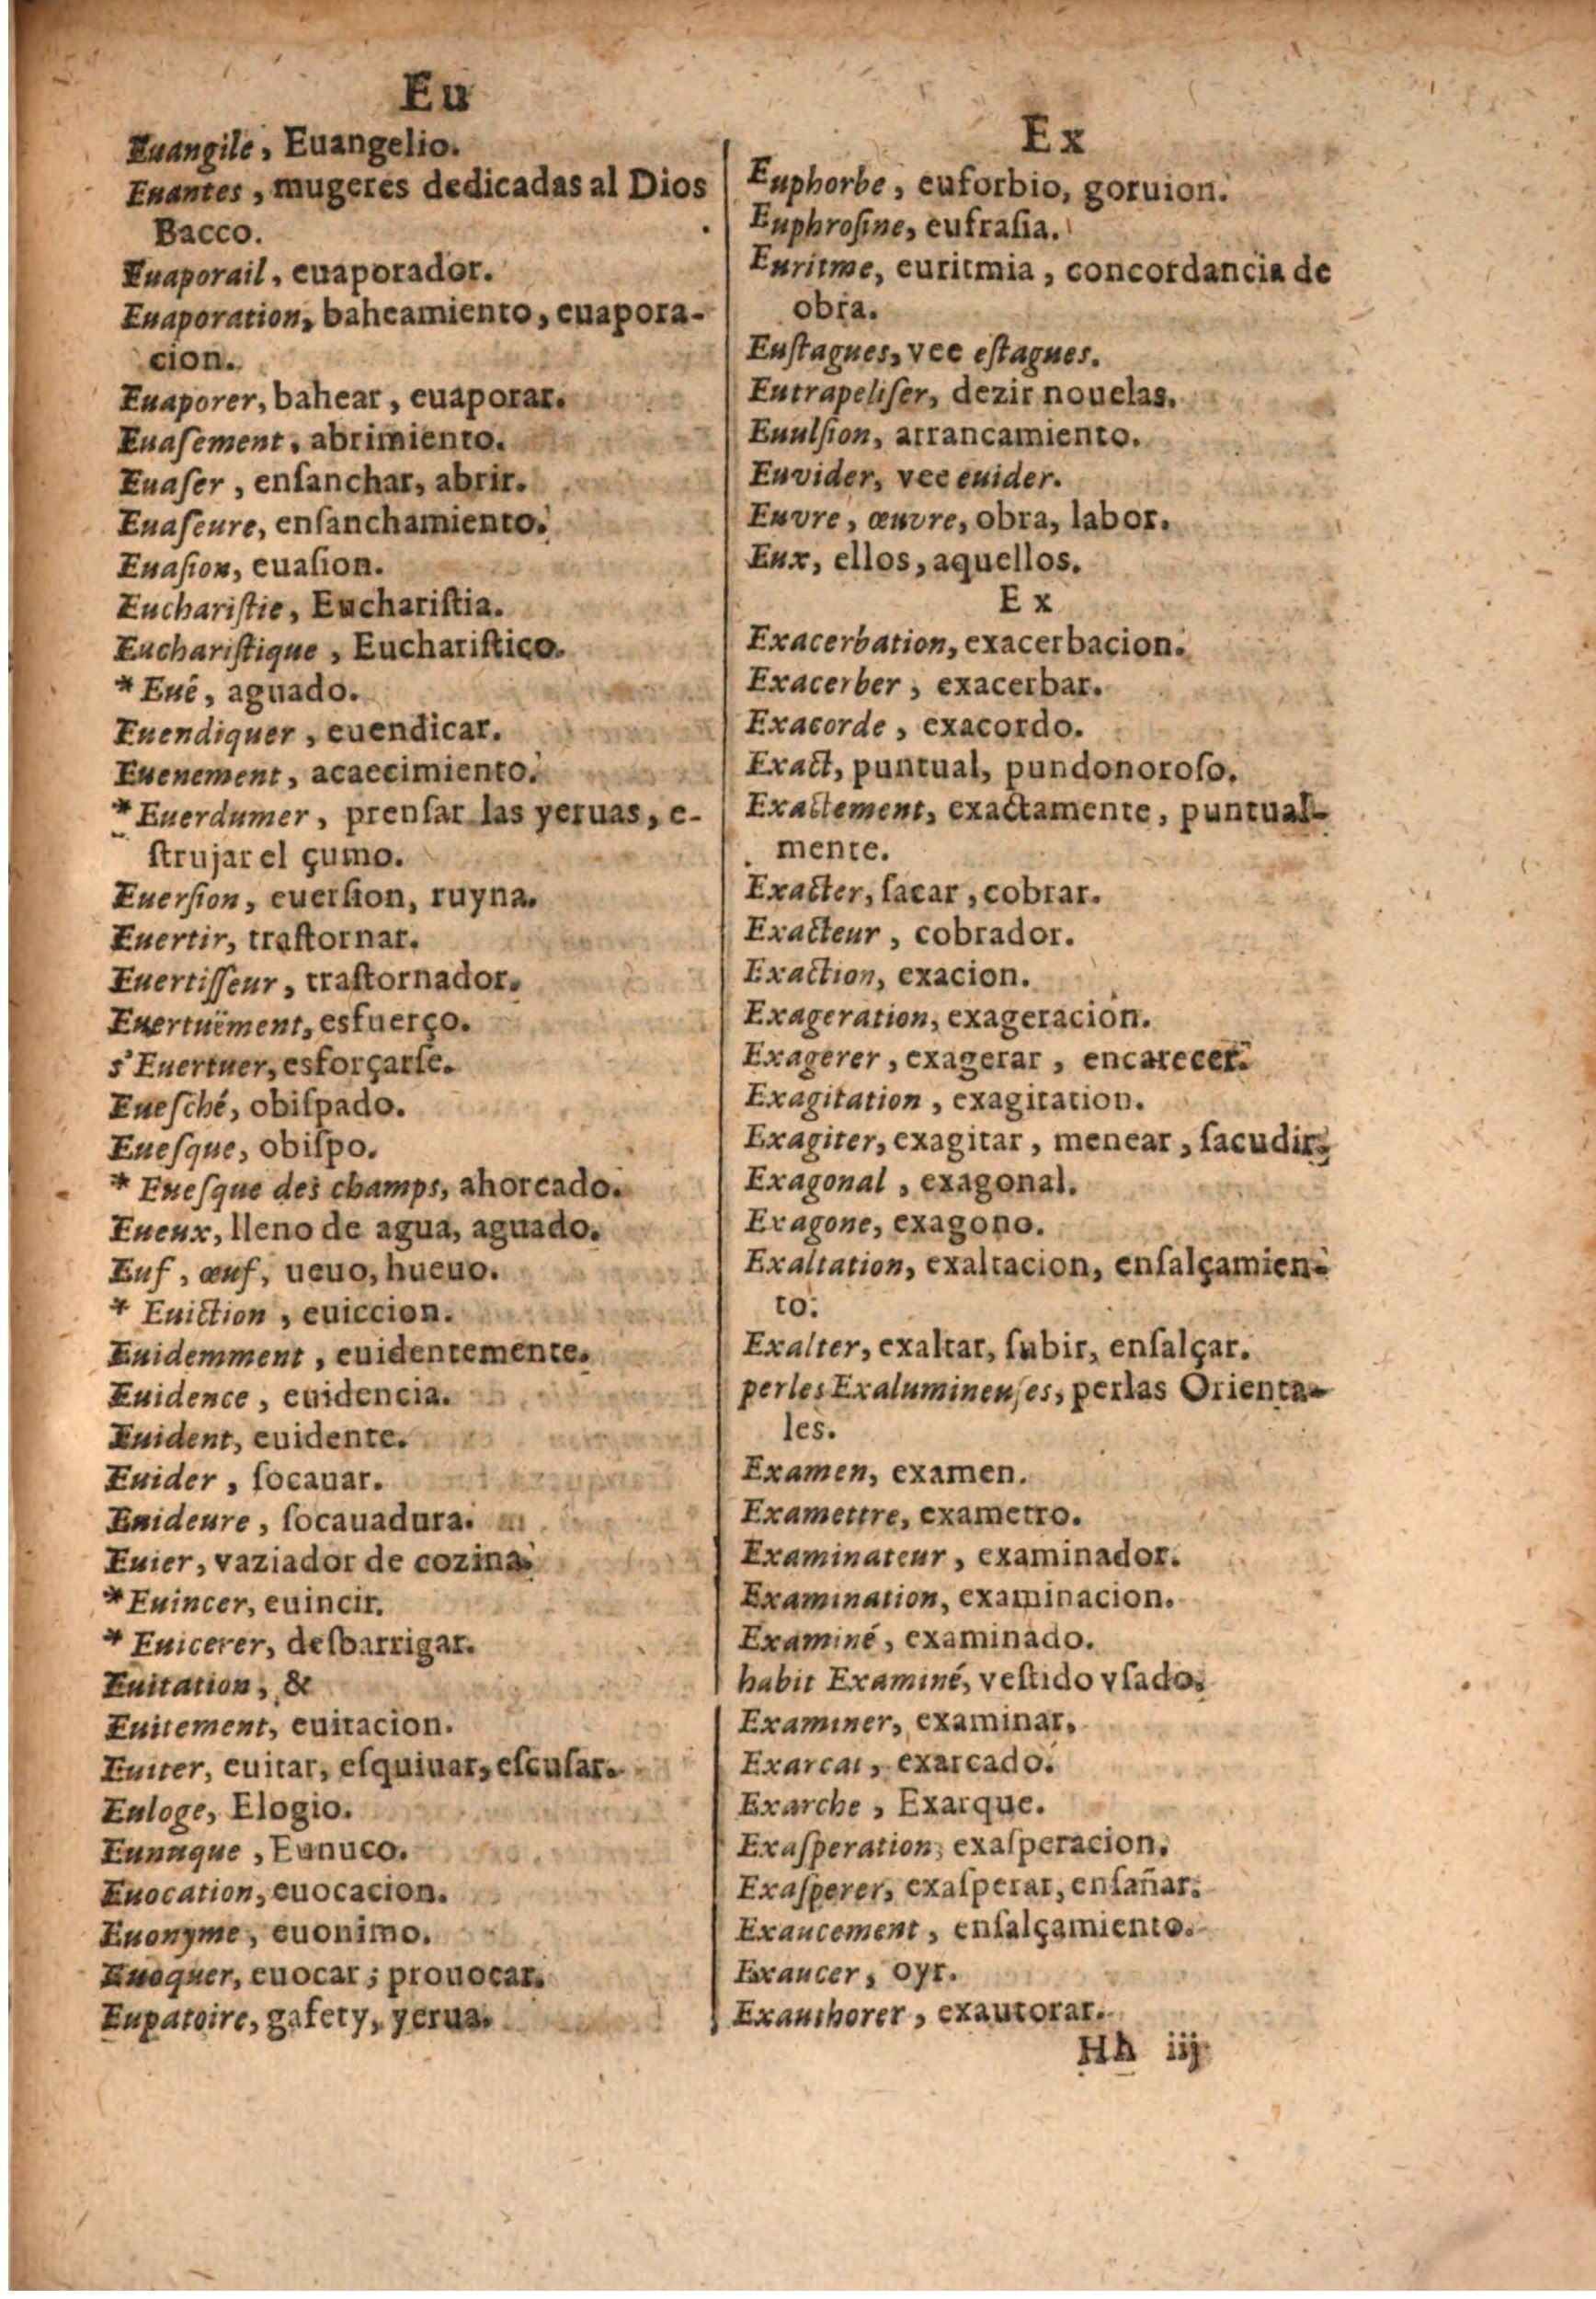 Eu
Euangile, Euangelio.
Euantes, mugeres dedicadas al Dios
Bacco.
Euaporail, euaporador.
Euaporation, baheamiento, euapora-
cion.
Euaporer, bahear, euaporar.
Euaſement, abrimiento.
Euaſer, enſanchar, abrir.
Euaſeure, enſanchamiento.
Euaſion, euaſion.
Euchariſtie, Euchariſtia.
Euchariſtique, Euchariſtico.
*Eué, aguado.
Euendiquer, euendicar.
Euenement, acaecimiento.
*Euerdumer, prenſar las yeruas, e-
ſtrujar el çumo.
Euerſion, euerſion, ruyna.
Euertir, traſtornar.
Euertiſſeur, traſtornador.
Euertuëment, esfuerço.
s'Euertuer, esforçarſe.
Eueſché, obiſpado.
Eueſque, obiſpo.
* Eueſque des champs, ahorcado.
Eueux, lleno de agua, aguado.
Euf, œuf, ueuo, hueuo.
* Euiction, euiccion.
Euidemment, euidentemente.
Euidence, euidencia.
Euident, euidente.
Euider, ſocauar.
Euideure, ſocauadura.
Euier, vaziador de cozina.
*Euincer, euincir.
* Euicerer, desbarrigar.
Euitation, &
Euitement, euitacion.
Euiter, euitar, eſquiuar, eſcuſar.
Euloge, Elogio.
Eunuque, Eunuco.
Euocation, euocacion.
Euonyme, euonimo.
Euoquer, euocar; prouocar.
Eupatoire, gafety, yerua.
Ex
Euphorbe, euforbio, goruion.
Euphroſine, eufraſia.
Euritme, euritmia, concordancia de
obra.
Euſtagues, vee eſtagues.
Eutrapeliſer, dezir nouelas.
Euulſion, arrancamiento.
Euvider, vee euider.
Euvre, œuvre, obra, labor.
Eux, ellos, aquellos.
Ex
Exacerbation, exacerbacion.
Exacerber, exacerbar.
Exacorde, exacordo.
Exact, puntual, pundonoroſo.
Exactement, exactamente, puntual-
mente.
Exacter, ſacar, cobrar.
Exacteur, cobrador.
Exaction, exacion.
Exageration, exageracion.
Exagerer, exagerar, encarecer.
Exagitation, exagitation.
Exagiter, exagitar, menear, ſacudir.
Exagonal, exagonal.
Exagone, exagono.
Exaltation, exaltacion, enſalçamien-
to.
Exalter, exaltar, ſubir, enſalçar.
perles Exalumineuſes, perlas Orienta-
les.
Examen, examen.
Examettre, exametro.
Examinateur, examinador.
Examination, examinacion.
Examiné, examinado.
habit Examiné, veſtido vſado.
Examiner, examinar.
Exarcat, exarcado.
Exarche, Exarque.
Exaſperation, exaſperacion.
Exaſperer, exaſperar, enſañar.
Exaucement, enſalçamiento.
Exaucer, oyr.
Exauthorer, exautorar.
Hh iij